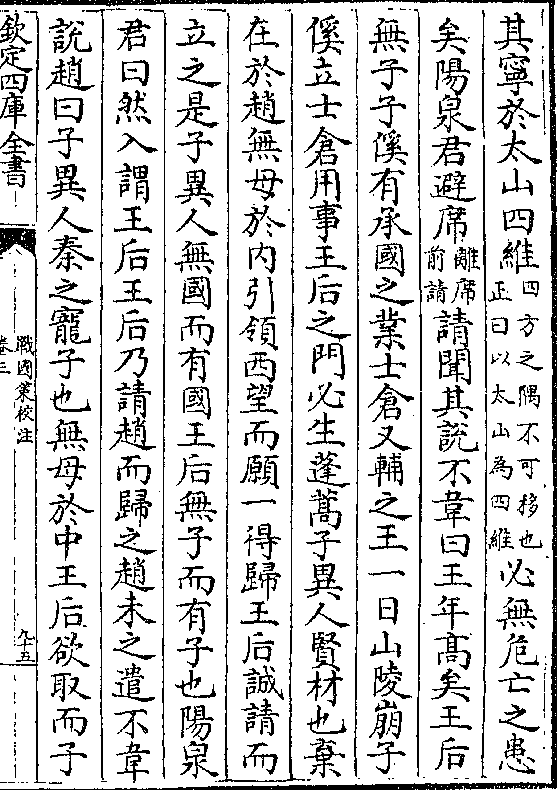 其寧於太山四維四方之隅不可移也正曰以太山為四維必無危亡之患
矣陽泉君避席離席前請請聞其說不韋曰王年髙矣王后
無子子傒有承國之業士倉又輔之王一日山陵崩子
傒立士倉用事王后之門必生蓬蒿子異人賢材也棄
在於趙無母於內引領西望而願一得歸王后誠請而
立之是子異人無國而有國王后無子而有子也陽泉
君曰然入謂王后王后乃請趙而歸之趙未之遣不韋
說趙曰子異人秦之寵子也無母於中王后欲取而子
欽定四庫全書
戰國策校注
卷三
九十五